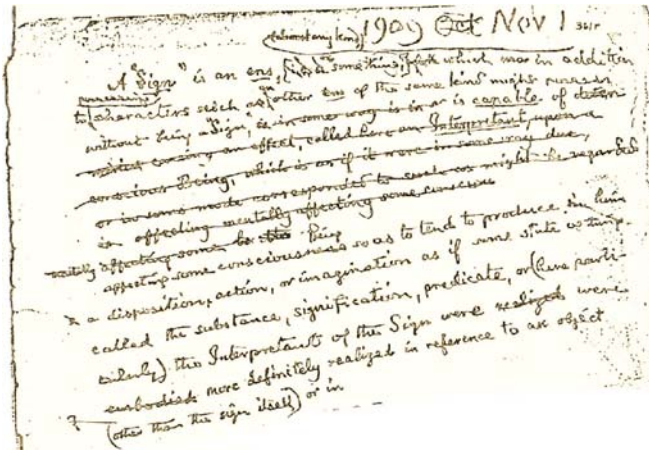 1909 Oct Nov 1
(almost any kind)
A "Sign" is an ens, (i.e. something, of which may in addition
to possessing characters such as other ens of the same kind might possess
without being a "Sign", is in some way is in or is capable of
an effect, called here an Interpretant upon a
conscious Being, which is as if it were in some way due,
or in some mode corresponded to such as might be regarded
as affecting mentally affecting some conscious
mentally affecting some Being
affecting some consciousness so as to tend to produce in him
a disposition, action, or imagination as if some state or thing
called the substance, signification, predicate, or (here parti-
cularly) the Interpretant of the Sign were realized were
embodied more definitely realized in reference to an object
(other than the sign itself) or in